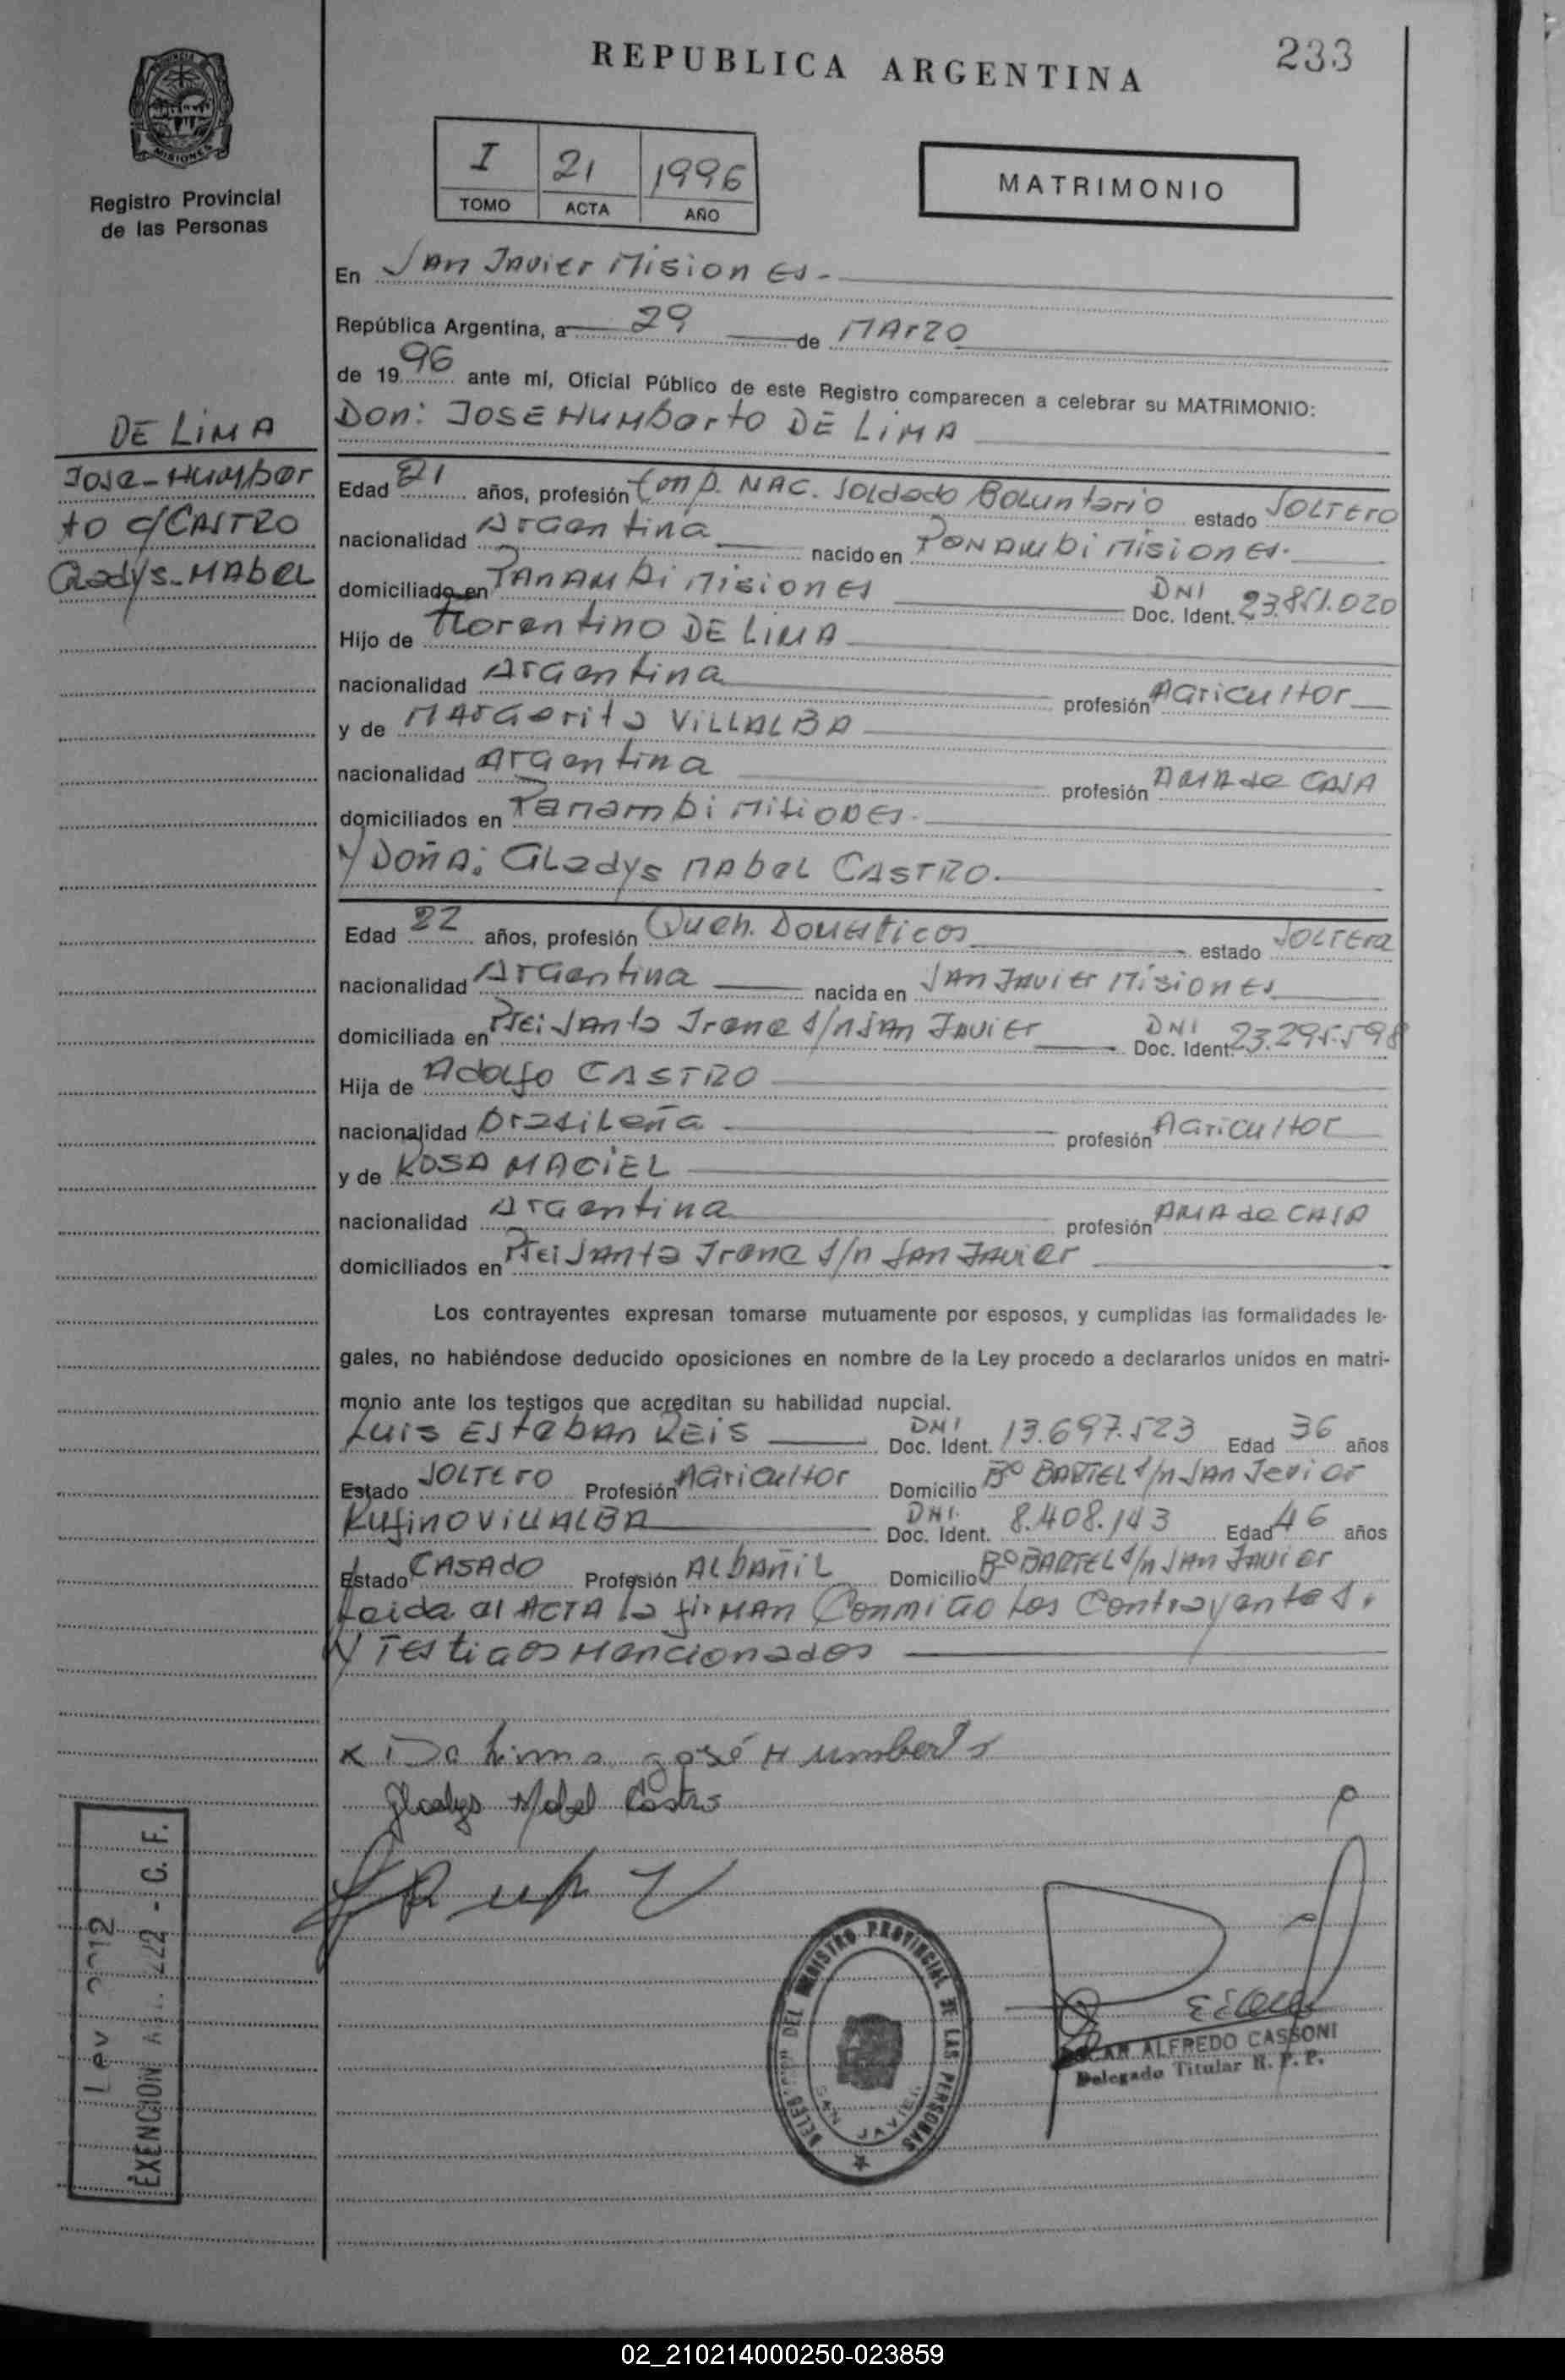 REPUBLICA ARGENTINA
233
MISIONES
Registro Provincial
de las Personas
I 21 1996
TOMO ACTA AÑO
MATRIMONIO
En SAN JAvier MisionEs.-
República Argentina, a 29 de MArzo
de 1996 ante mí, Oficial Público de este Registro comparecen a celebrar su MATRIMONIO:
Don: JOSE HuMberto DE LiMA
DE LiMA
Jose-HuMber
to c/CASTRO
Gladys-MAbeL
Edad 21 años, profesión NAC. Soldado Boluntario estado SOLTEro
nacionalidad Argentina nacido en PaNAmbi MisionEs.
domiciliado en PAnAMbi MisionEs DNI
Doc. Ident. 23.851.020
Hijo de Florentino DE LiMA
nacionalidad Argentina profesión Agricultor
y de MArgerita ViLLALBA
nacionalidad Argentina profesión AMA de CASA
domiciliados en Panambi MisionEs.
Y DoñA: GLadys MAbeL CASTRO.
Edad 22 años, profesión Queh. DoMesticos estado SOLTEra
nacionalidad Argentina nacida en SAn JAviEr MisionEs
domiciliada en SAnta Irene s/n SAn JAviEr DNI
Doc. Ident. 23.295.598
Hija de Adolfo CASTRO
nacionalidad brasileña profesión Agricultor
y de ROSA MACiEL
nacionalidad Argentina profesión AMA de CASA
domiciliados en SAnta Irene s/n SAn JAvier
Los contrayentes expresan tomarse mutuamente por esposos, y cumplidas las formalidades le-
gales, no habiéndose deducido oposiciones en nombre de la Ley procedo a declararlos unidos en matri-
monio ante los testigos que acreditan su habilidad nupcial.
Luis EstebAn REiS DNI Doc. Ident. 13.697.523 Edad 36 años
Estado SOLTEro Profesión Agricultor Domicilio Bº BARTEL s/n SAn Javier
Rufino ViLLALBA DNI. Doc. Ident. 8.408.143 Edad 46 años
Estado CASAdo Profesión ALbAñiL Domicilio Bº BARTEL s/n SAn JAvier
Leida el ACTA la firMAn ConMigo Los Contrayentes.
Y Testigos Mencionados
x De Lima José Humberto
Gladys Mabel Castro
Ley 2212
EXENCION Art. 222 - C. F.
DELEGACION DEL REGISTRO PROVINCIAL DE LAS PERSONAS
SAN JAVIER
OSCAR ALFREDO CASSONI
Delegado Titular R. P. P.
02_210214000250-023859